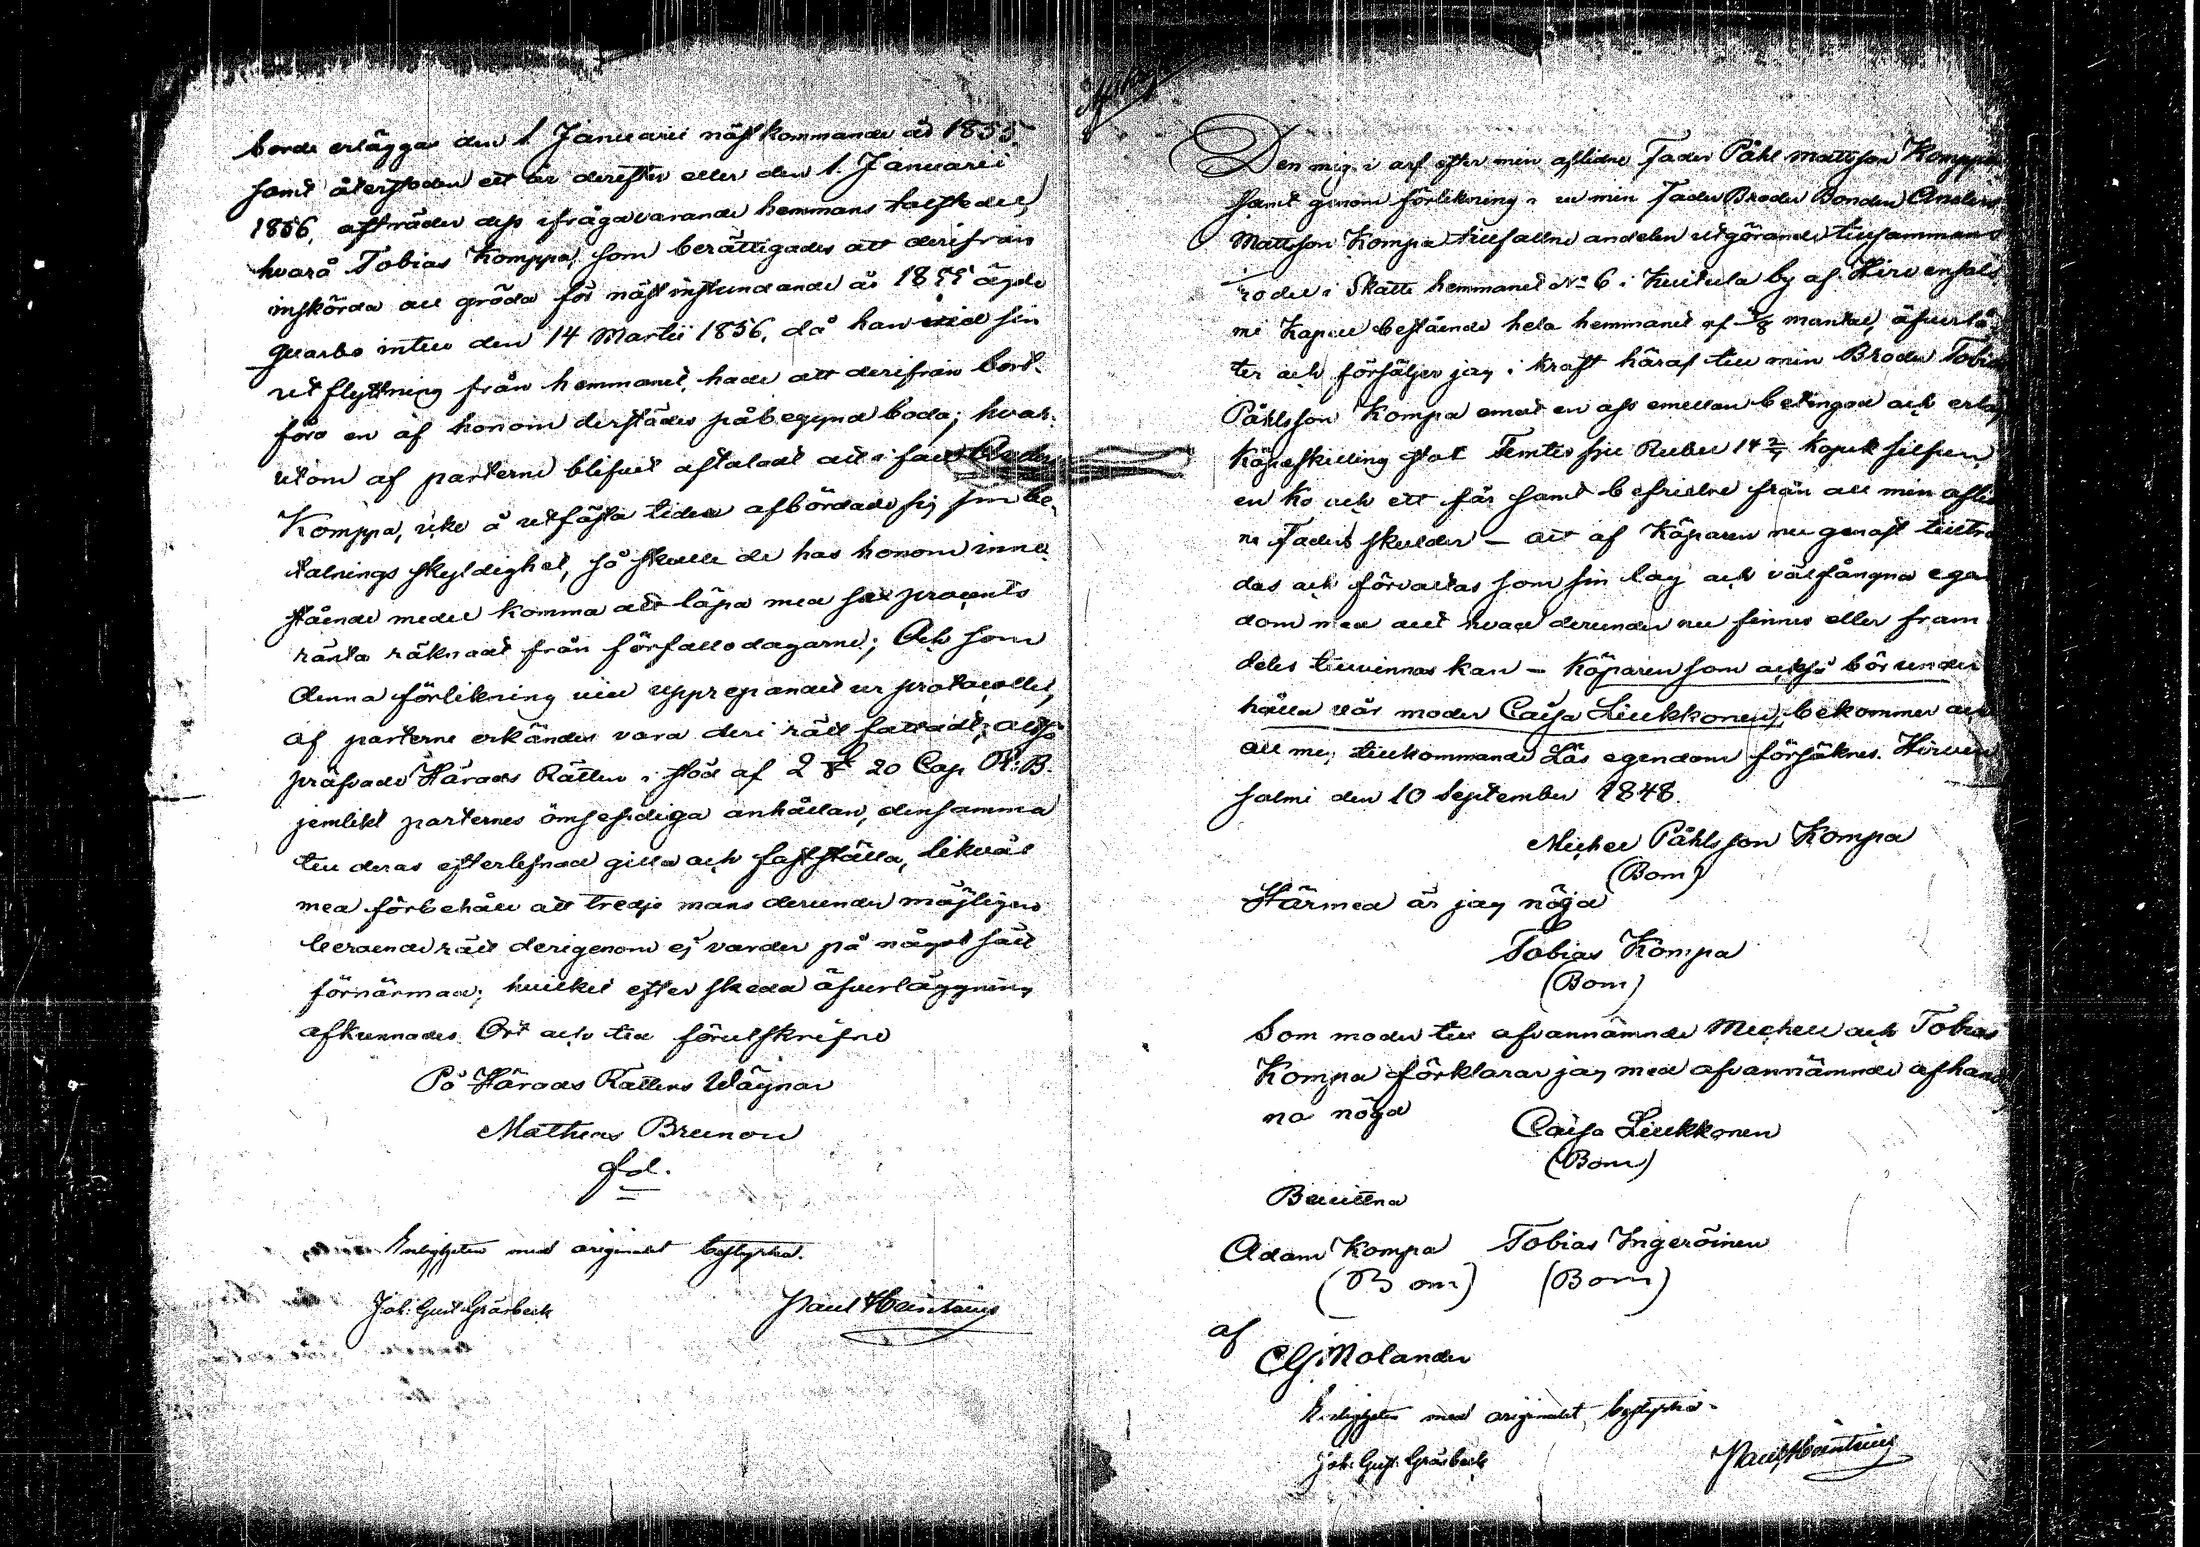 borde erläggas den 1 Januarii nästkommande år 1855.
samt återstoden ett år derefter eller den 1. Januarii
1856, afträder dess ifrågavarande hemmans halfdel,
hvarå Tobias Komppa, som berättigades att derifrån
inskörda all gröda för nästinstundande år 1855 ägde
qvarbo intill den 14 Martii 1856, då han vid sin
utflyttning från hemmanet, hade att derifrån bort-
föra en af honom derstädes påbegynd boda; hvar-
utom af parterne blifvit aftaladt att i fall
Komppa, icke å utfästa tider afbördade sig sin be-
talnings skyldighet, så skulle de hos honom inne-
stående medel komma att löpa med sex procents
ränta räknadt från förfallodagarne; Och som
denna förlikning vid upprepandet ur protocollet,
af parterne erkändes vara deri rätt fattadt; altså
pröfvade Härads Rätten i stöd af 2 § 20 Cap. R: B.
jemlikt parternes ömsesidiga anhållan, densamma
till deras efterlefnad gilla och fastställa, likväl
med förbehåll att tredje mans derunder möjligen
beroende rätt derigenom ej varder på något sätt
förnärmad; hvilket efter skedd öfverläggning
afkunnades. Ort och tid förutskrifne
På Härads Rättens Wägnar
Mathens Brunou
Enligheten med originalet bestyrka.
Joh: Gust. Gråsbeck Paul Heintzius
Den mig i arf efter min aflidne Fader Påhl Mattsson Komppa
samt genom förlikning i ur min Fader Broder Bonden Anders
Mattsson Kompa tillfallne andelen utgörande tillsammans
rodel i Skatte hemmanet No 6 i Kuitula by af Hirvensal-
mi Kapell bestående hela hemmanet af mantal, öfverlå-
ter och försäljer jag i kraft häraf till min Broder Tobias
Påhlsson Kompa emot en oss emellan betingad och erlagd
Köpeskilling stor Femtio sju Rubel 14 2/7 Kopek silfver,
en ko och ett får samt befrielse från all min aflid-
ne Faders skulder – att af Köparen nu genast tillträ-
das och förvaltas som sin lag och välfångna egen
dom med allt hvad derunder nu finnes eller fram
deles tillvinnas kan – Köparen som också bör under
hålla vår moder Caisa Liukkonen, bekommer och
all mig tillkommande Lös egendom försäkras. Hirven
salmi den 10 September 1848.
Michel Påhlsson Kompa
(Bom)
Härmed är jag nögd
Tobias Kompa
(Bom)
Som moder till ofvannämnde Michell och Tobias
Kompa förklarar jag med ofvannämnde afhand
na nögd Caisa Liukkonen
(Bom)
Bevittna
Adam Kompa Tobias Ingeröinen
(Bom) (Bom)
af
CG: Molander
Enligheten med originalet, bestyrka.
Joh: Gust. Gråsbeck Paul Heintzius